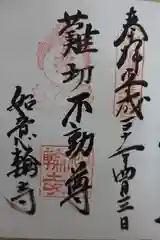 奉拝 平成三十一年四月三日
難切不動尊
如意輪寺